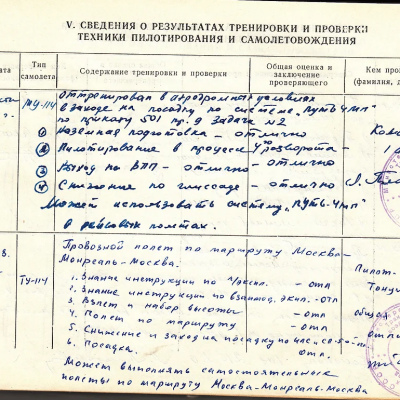 V. СВЕДЕНИЯ О РЕЗУЛЬТАТАХ ТРЕНИРОВКИ И ПРОВЕРКИ
ТЕХНИКИ ПИЛОТИРОВАНИЯ И САМОЛЕТОВОЖДЕНИЯ
ата
Тип самолета
Содержание тренировки и проверки
Общая оценка и заключение проверяющего
Кем про
(фамилия, д
ТУ-114
Оттренирован в аэродромных условиях
в заходе на посадку по системе „ПУТЬ-4МП"
по приказу 501 пр. 9 задача 2
① Наземная подготовка – отлично
② Пилотирование в процессе 4 разворота –
③ Выход на ВПП – отлично – отлично
④ Снижение по глиссаде – отлично
Может использовать систему „ПУТЬ-4МП"
в рейсовых полетах.
ТУ-114
Провозной полет по маршруту Москва-
Монреаль-Москва.
1. Знание инструкции по л/экспл. – отл
2. Знание инструкции по взаимод. экип. – отл
3. Взлет и набор высоты – отл
4. Полет по маршруту – отл
5. Снижение и заход на посадку по
6. Посадка. отл.
Может выполнять самостоятельные
полеты по маршруту Москва-Монреаль-Москва
Пилот-
общая
отли